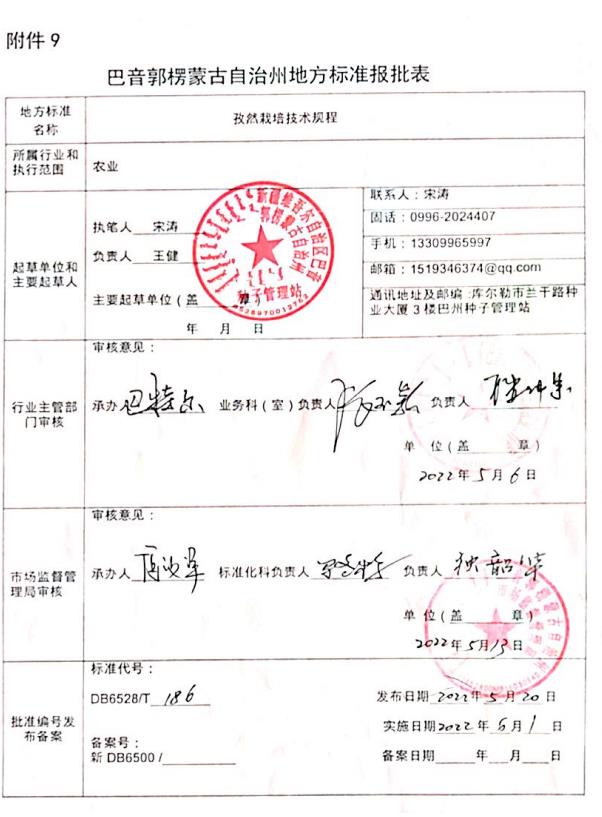 附件 9
巴音郭楞蒙古自治州地方标准报批表
地方标准
名称
孜然栽培技术规程
所属行业和
执行范围
农业
起草单位和
主要起草人
执笔人 宋涛
负责人 王健
主要起草单位(盖 章)
年 月 日
种子管理站
联系人:宋涛
固话:0996-2024407
手机:13309965997
邮箱:1519346374@qq.com
通讯地址及邮编:库尔勒市兰干路种
业大厦 3 楼巴州种子管理站
行业主管部
门审核
审核意见:
承办人 巴特尔 业务科(室)负责人 负责人
单 位(盖 章)
2022 年 5 月 6 日
市场监督管
理局审核
审核意见:
承办人 标准化科负责人 负责人
单 位(盖 章)
2022 年 5 月 13 日
批准编号发
布备案
标准代号:
DB6528/T 186
备案号:
新 DB6500 /
发布日期 2022 年 5 月 20 日
实施日期 2022 年 6 月 1 日
备案日期 年 月 日